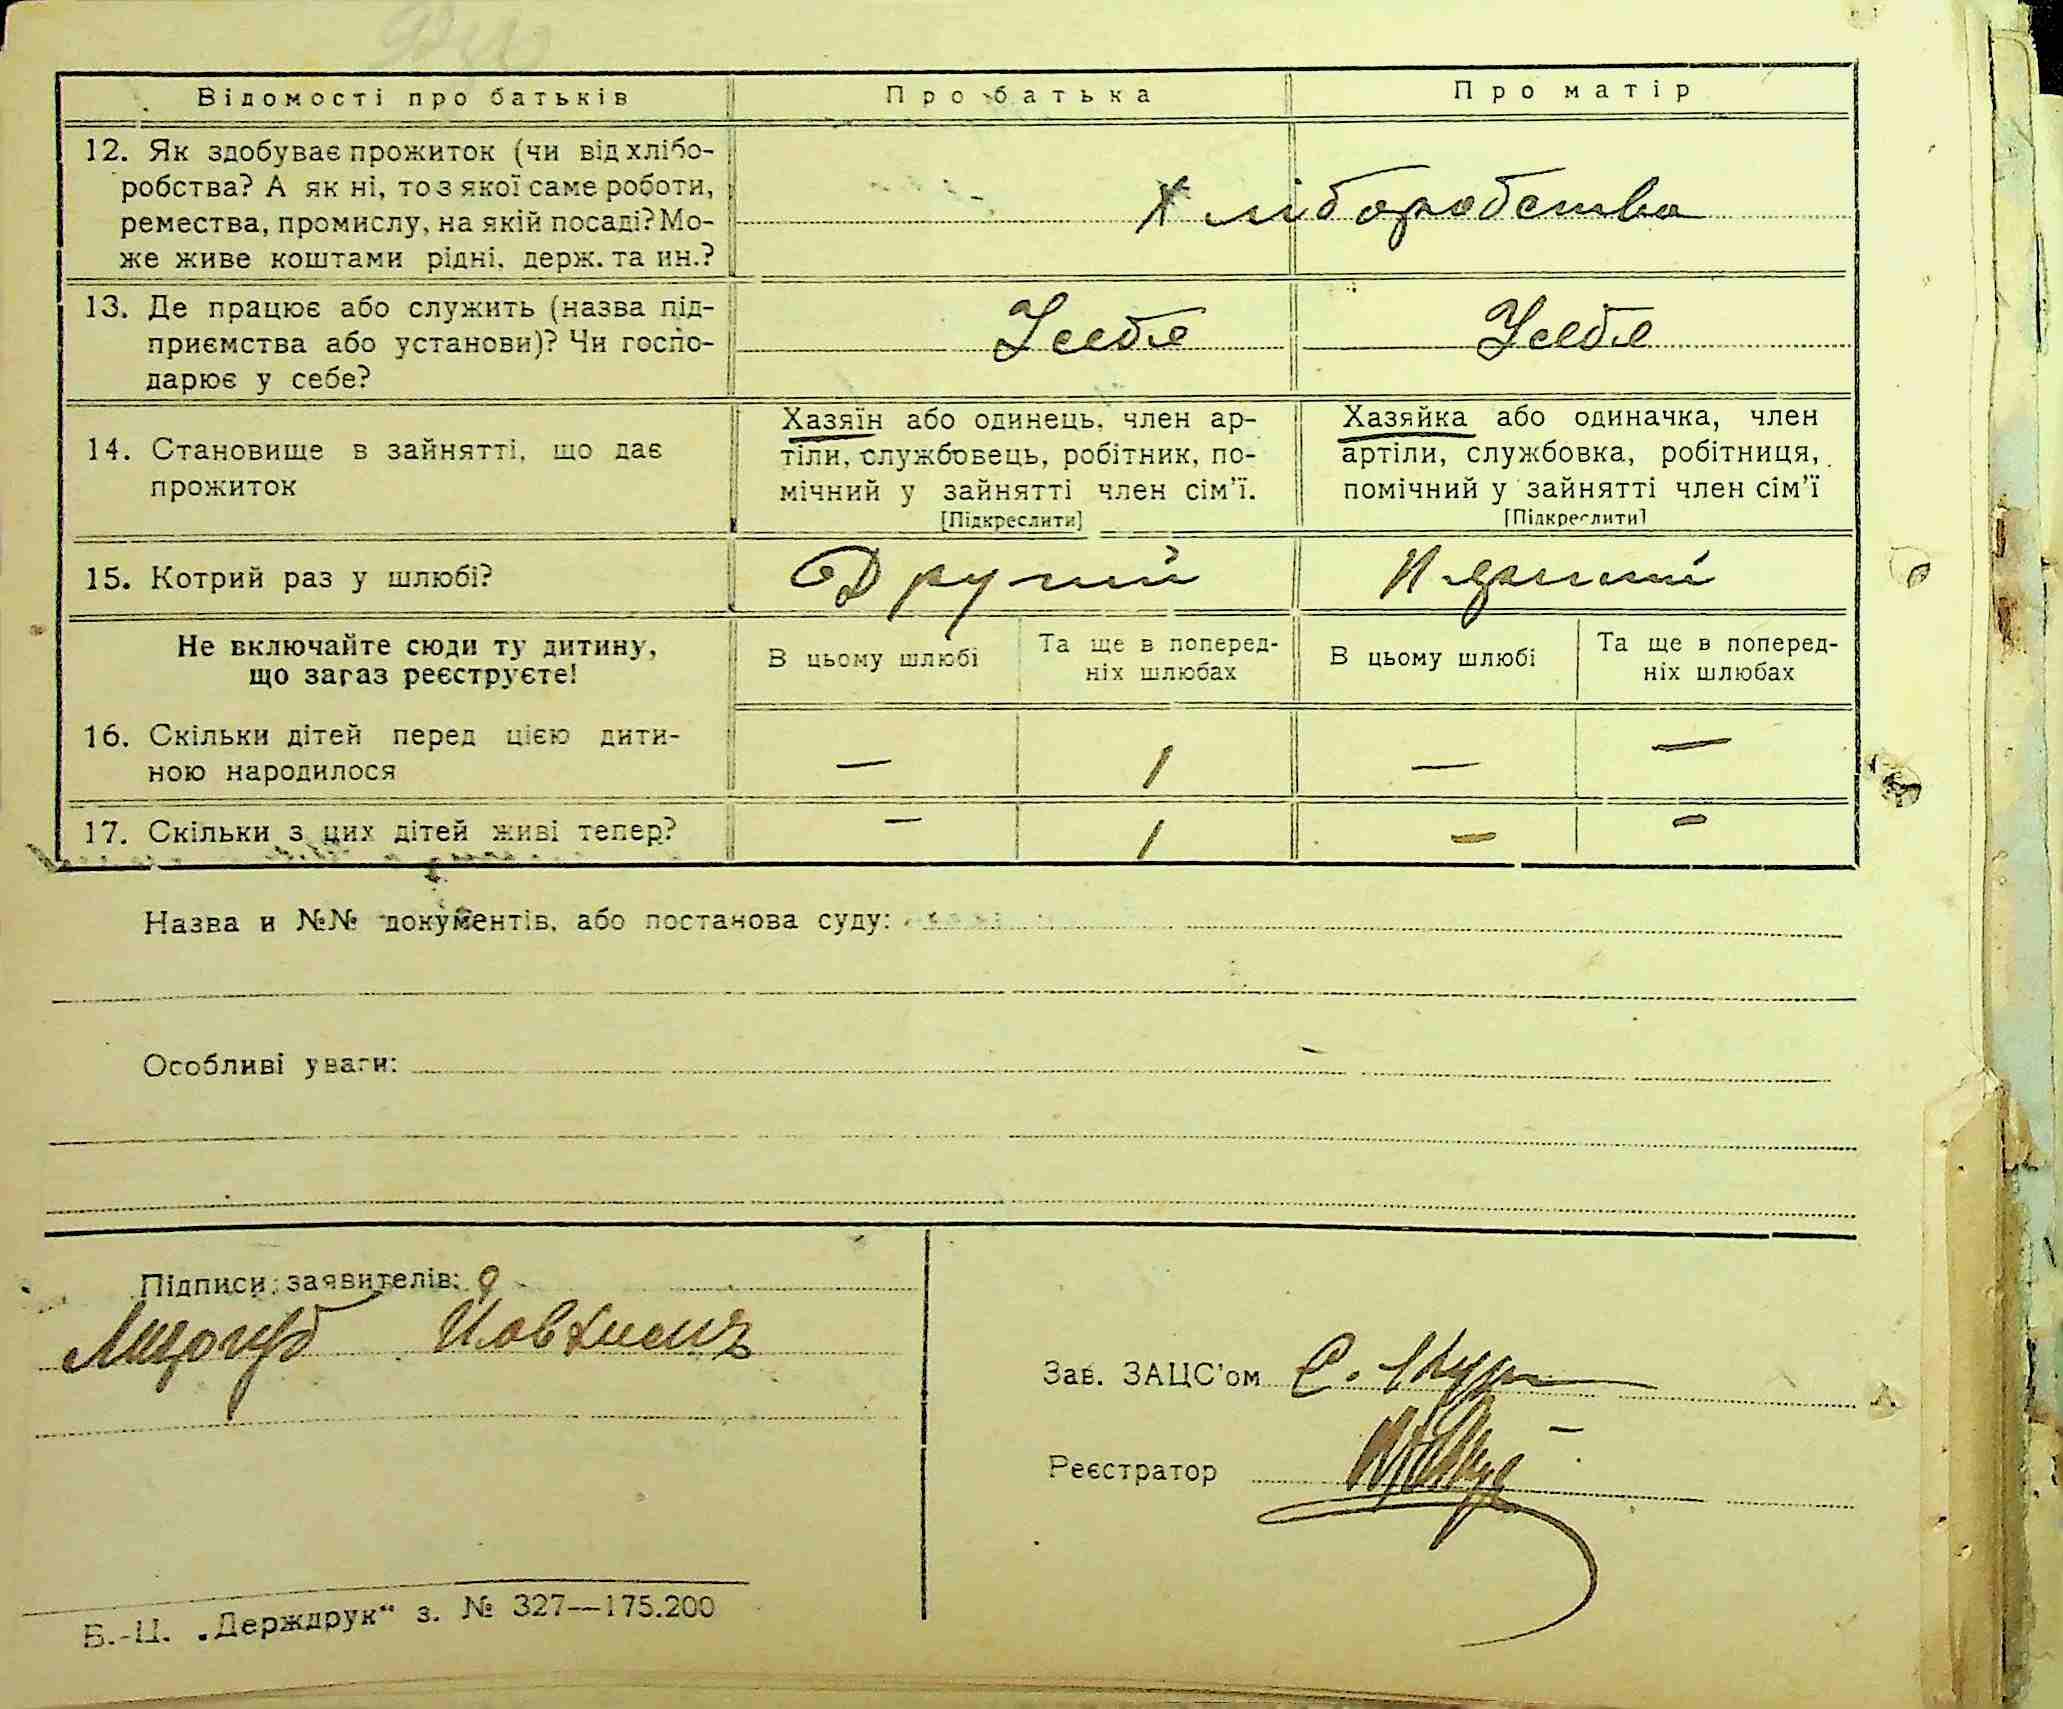 Відомості про батьків
Про батька
Про матір
12. Як здобуває прожиток (чи від хлібо-
робства? А як ні, то з якої саме роботи,
ремества, промислу, на якій посаді? Мо-
же живе коштами рідні, держ. та ин.?
Хліборобства
13. Де працює або служить (назва під-
приємства або установи)? Чи госпо-
дарює у себе?
У себе
У себе
14. Становище в зайнятті, що дає
прожиток
Хазяїн або одинець, член ар-
тіли, службовець, робітник, по-
мічний у зайнятті член сім'ї.
[Підкреслити]
Хазяйка або одиначка, член
артіли, службовка, робітниця,
помічний у зайнятті член сім'ї
[Підкреслити]
15. Котрий раз у шлюбі?
Другий
Перший
Не включайте сюди ту дитину,
що загаз реєструєте!
В цьому шлюбі
Та ще в поперед-
ніх шлюбах
В цьому шлюбі
Та ще в поперед-
ніх шлюбах
16. Скільки дітей перед цією дити-
ною народилося
— 1 — —
17. Скільки з цих дітей живі тепер?
— 1 — —
Назва и №№ документів, або постанова суду:
Особливі уваги:
Підписи заявителів:
Зав. ЗАЦС'ом С.
Реєстратор
Б.-Ц. „Держдрук" з. № 327—175.200